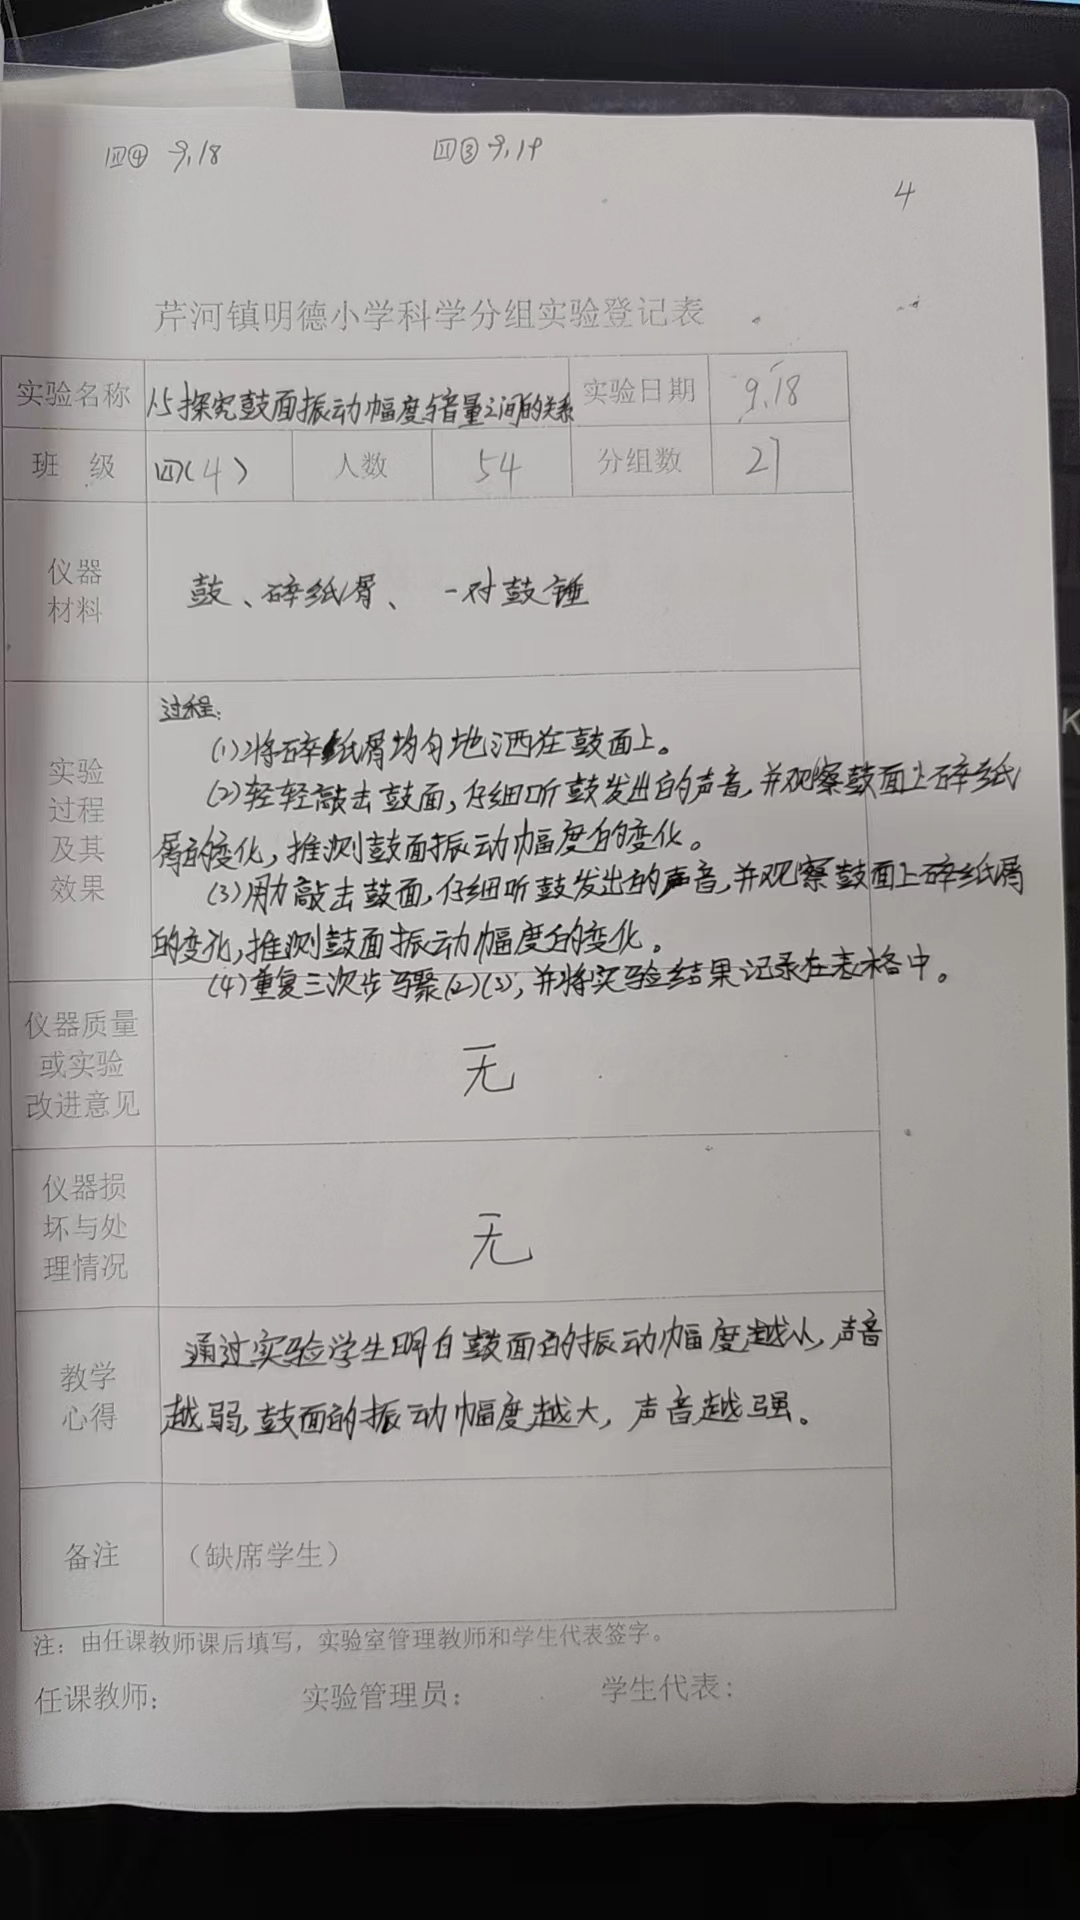 四④ 9.18 四③ 9.19
4
芹河镇明德小学科学分组实验登记表
实验名称 1.5探究鼓面振动幅度与音量之间的关系 实验日期 9.18
班 级 四(4) 人数 54 分组数 27
仪器
材料
鼓、碎纸屑、一对鼓锤
实验
过程
及其
效果
过程:
(1)将碎纸屑均匀地洒在鼓面上。
(2)轻轻敲击鼓面,仔细听鼓发出的声音,并观察鼓面上碎纸
屑的变化,推测鼓面振动幅度的变化。
(3)用力敲击鼓面,仔细听鼓发出的声音,并观察鼓面上碎纸屑
的变化,推测鼓面振动幅度的变化。
(4)重复三次步骤(2)(3),并将实验结果记录在表格中。
仪器质量
或实验
改进意见
无
仪器损
坏与处
理情况
无
教学
心得
通过实验学生明白鼓面的振动幅度越小,声音
越弱,鼓面的振动幅度越大,声音越强。
备注 (缺席学生)
注:由任课教师课后填写,实验室管理教师和学生代表签字。
任课教师: 实验管理员: 学生代表:
K